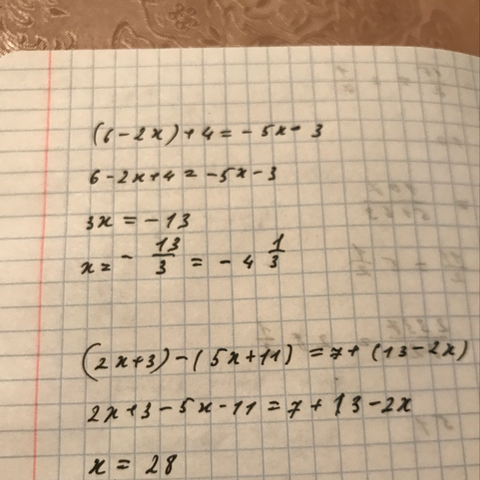 (6-2x)+4=-5x-3
6-2x+4=-5x-3
3x=-13
x=-13/3=-4 1/3
(2x+3)-(5x+11)=7+(13-2x)
2x+3-5x-11=7+13-2x
x=28